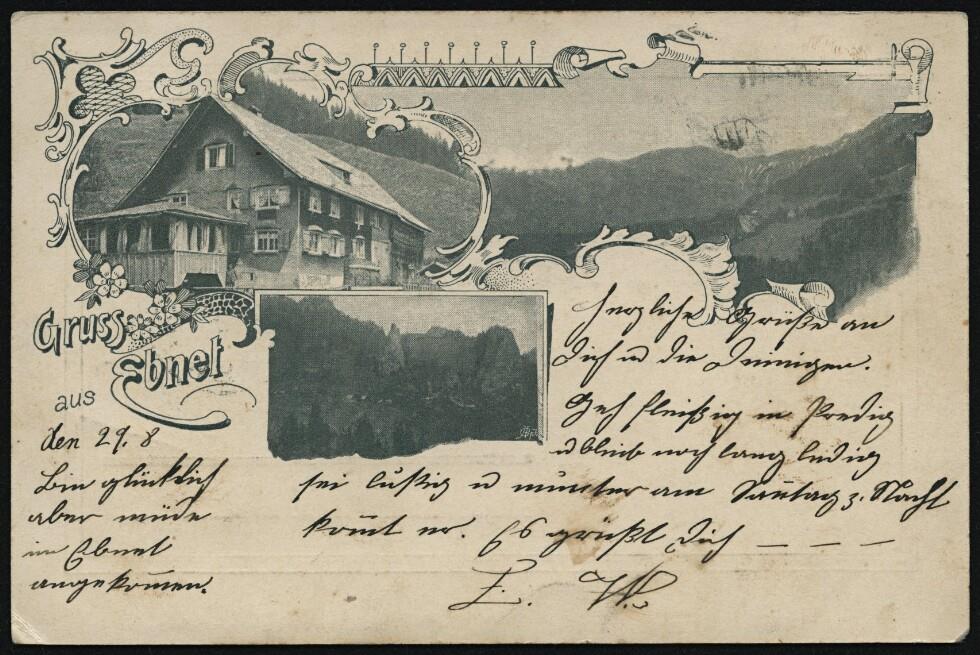 Gruss
aus
Ebnet
den 29. 8
Bin glücklich
aber müde
im Ebnet
angekom̅en.
Herzliche Grüße an
Dich u die Deinigen.
Geh fleißig in Predig
u bleib noch lang ledig
sei lustig u munter am Son̅tag z. Nacht
kom̅t er. Es grüßt Dich – – –
E. W.